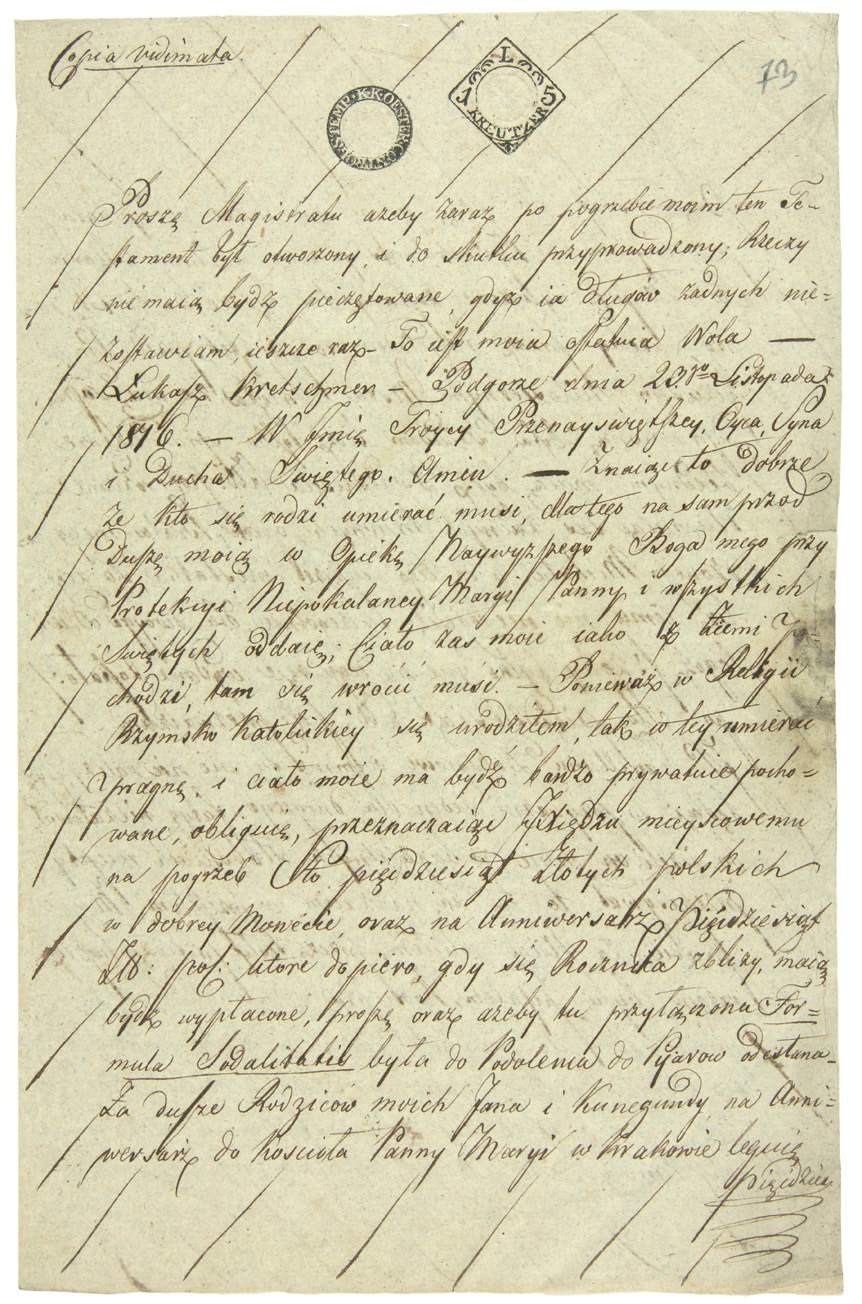 Copia vidimata
73
STEMP · K·K·OESTER
L
15
KREUTZER
Proszę Magistratu ażeby zaraz po pogrzebie moim ten Te-
stament był otworzony, i do skutku przyprowadzony; Rzeczy
nie maią bydz pieczętowane, gdyż ia długów żadnych nie=
zostawiam, ieszcze raz – To iest moia ostatnia Wola —
Łukasz Kretschmer – Podgorze dnia 23.go Listopada
1816. – W Jmię Troycy Przenayświętszey, Oyca, Syna
i Ducha Świętego. Amen. — Znaiąc to dobrze
że kto się rodzi umierać musi, dlatego na sam przod
Duszę moią w Opiekę Naywyzszego Boga mego przy
Protekcyi Niepokalaney Maryi Panny i wszystkich
Świętych oddaię; Ciało zas moie iako z Ziemi po=
chodzi, tam się wrócić musi. – Ponieważ w Religii
Rzymsko Katolickiey się urodziłem, tak w tey umierać
pragnę, i ciało moie ma bydź bardzo prywatnie pocho=
wane, obliguię, przeznaczaiąc Xiędzu mieyscowemu
na pogrzeb Sto pięćdziesiąt Złotych polskich
w dobrey Monecie, oraz na Anniwersarz Pięćdziesiąt
Zł: pol: które dopiero, gdy się Rocznica zbliży, maią
bydz wypłacone, proszę oraz ażeby tu przyłączona For=
mula Sodalitatis była do Podolenca do Pyarow odesłana –
Za dusze Rodziców moich Jana i Kunegundy na Anni=
wersarz do Kościoła Panny Maryi w Krakowie leguię
pięćdzies